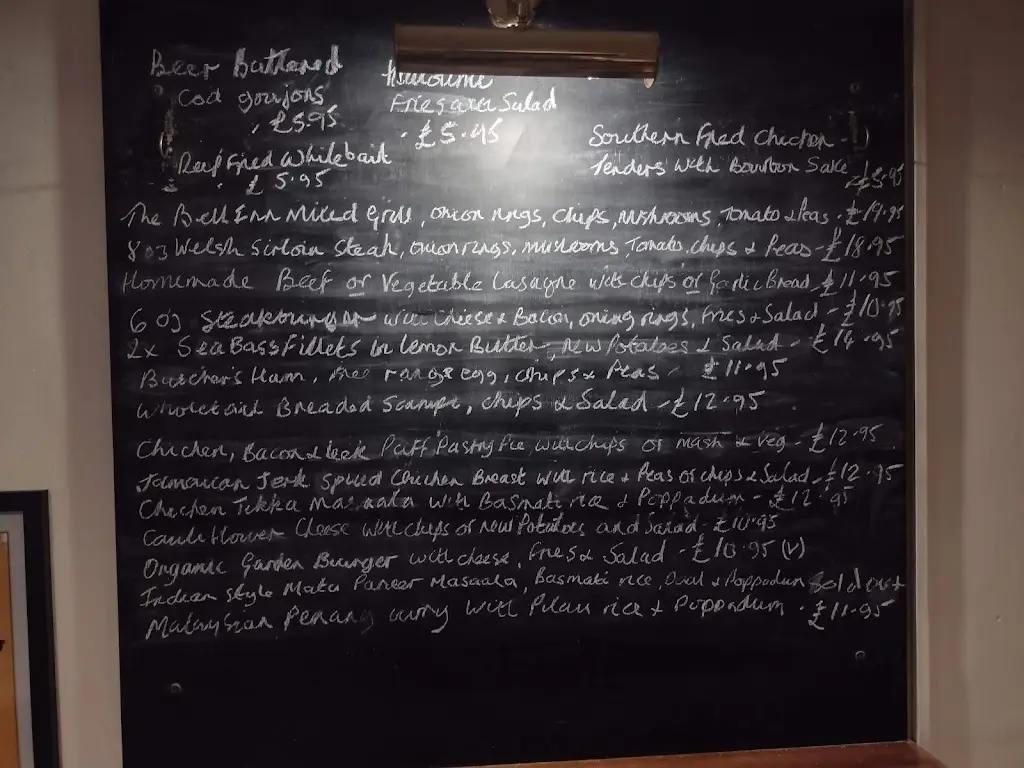 Beer Battered
Cod goujons
, £5.95
Haloumi
Fries and Salad
. £5.95
Southern Fried Chicken
Tenders with Bourbon Sake
£5.95
Deep Fried Whitebait
. £5.95
The Bell Inn Mixed Grill, onion rings, Chips, Mushrooms, Tomato & Peas. £19.95
8 oz Welsh Sirloin Steak, onion rings, mushrooms, Tomato, chips & Peas - £18.95
Homemade Beef or Vegetable Lasagne with chips or Garlic Bread £11.95
6 oz Steakburger with Cheese & Bacon, oning rings, Fries & Salad - £10.95
2x Sea Bass Fillets in Lemon Butter, New Potatoes & Salad - £14.95
Butcher's Ham, free range egg, chips & Peas - £11.95
Wholetail Breaded Scampi, Chips & Salad - £12.95
Chicken, Bacon & Leek Puff Pastry Pie with chips or mash & Veg - £12.95
Jamaican Jerk Spiced Chicken Breast with rice & Peas or chips & Salad - £12.95
Chicken Tikka Masaala with Basmati rice & Poppadum - £12.95
Cauliflower Cheese with chips or New Potatoes and Salad - £10.95
Organic Garden Burger with cheese, Fries & Salad - £10.95 (V)
Indian Style Mata Paneer Masaala, Basmati rice, & Poppadum Sold out
Malaysian Penang curry with Pilau rice & Poppodum. £11.95